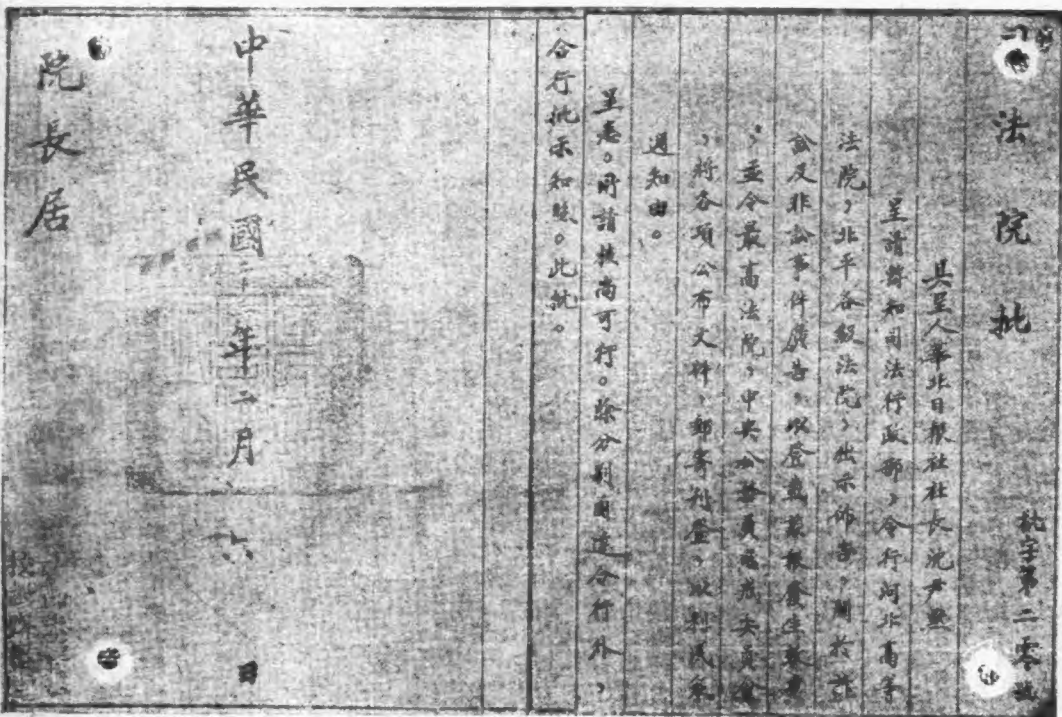 司法院批
批字第二零號
具呈人華北日報社社長沈尹默
呈請轉知司法行政部，令行河北高等
法院，北平各級法院，出示佈告，關於訴
訟及非訟事件廣告，以登載蔽報發生效力
，並令最高法院，中央公務員懲戒委員會
，將各項公布文件，郵寄刊登，以利民眾
通知由。
呈悉。所請核尚可行。除分別函達令行外，
合行批示知照。此批。
中華民國二十二年二月六日
院長居